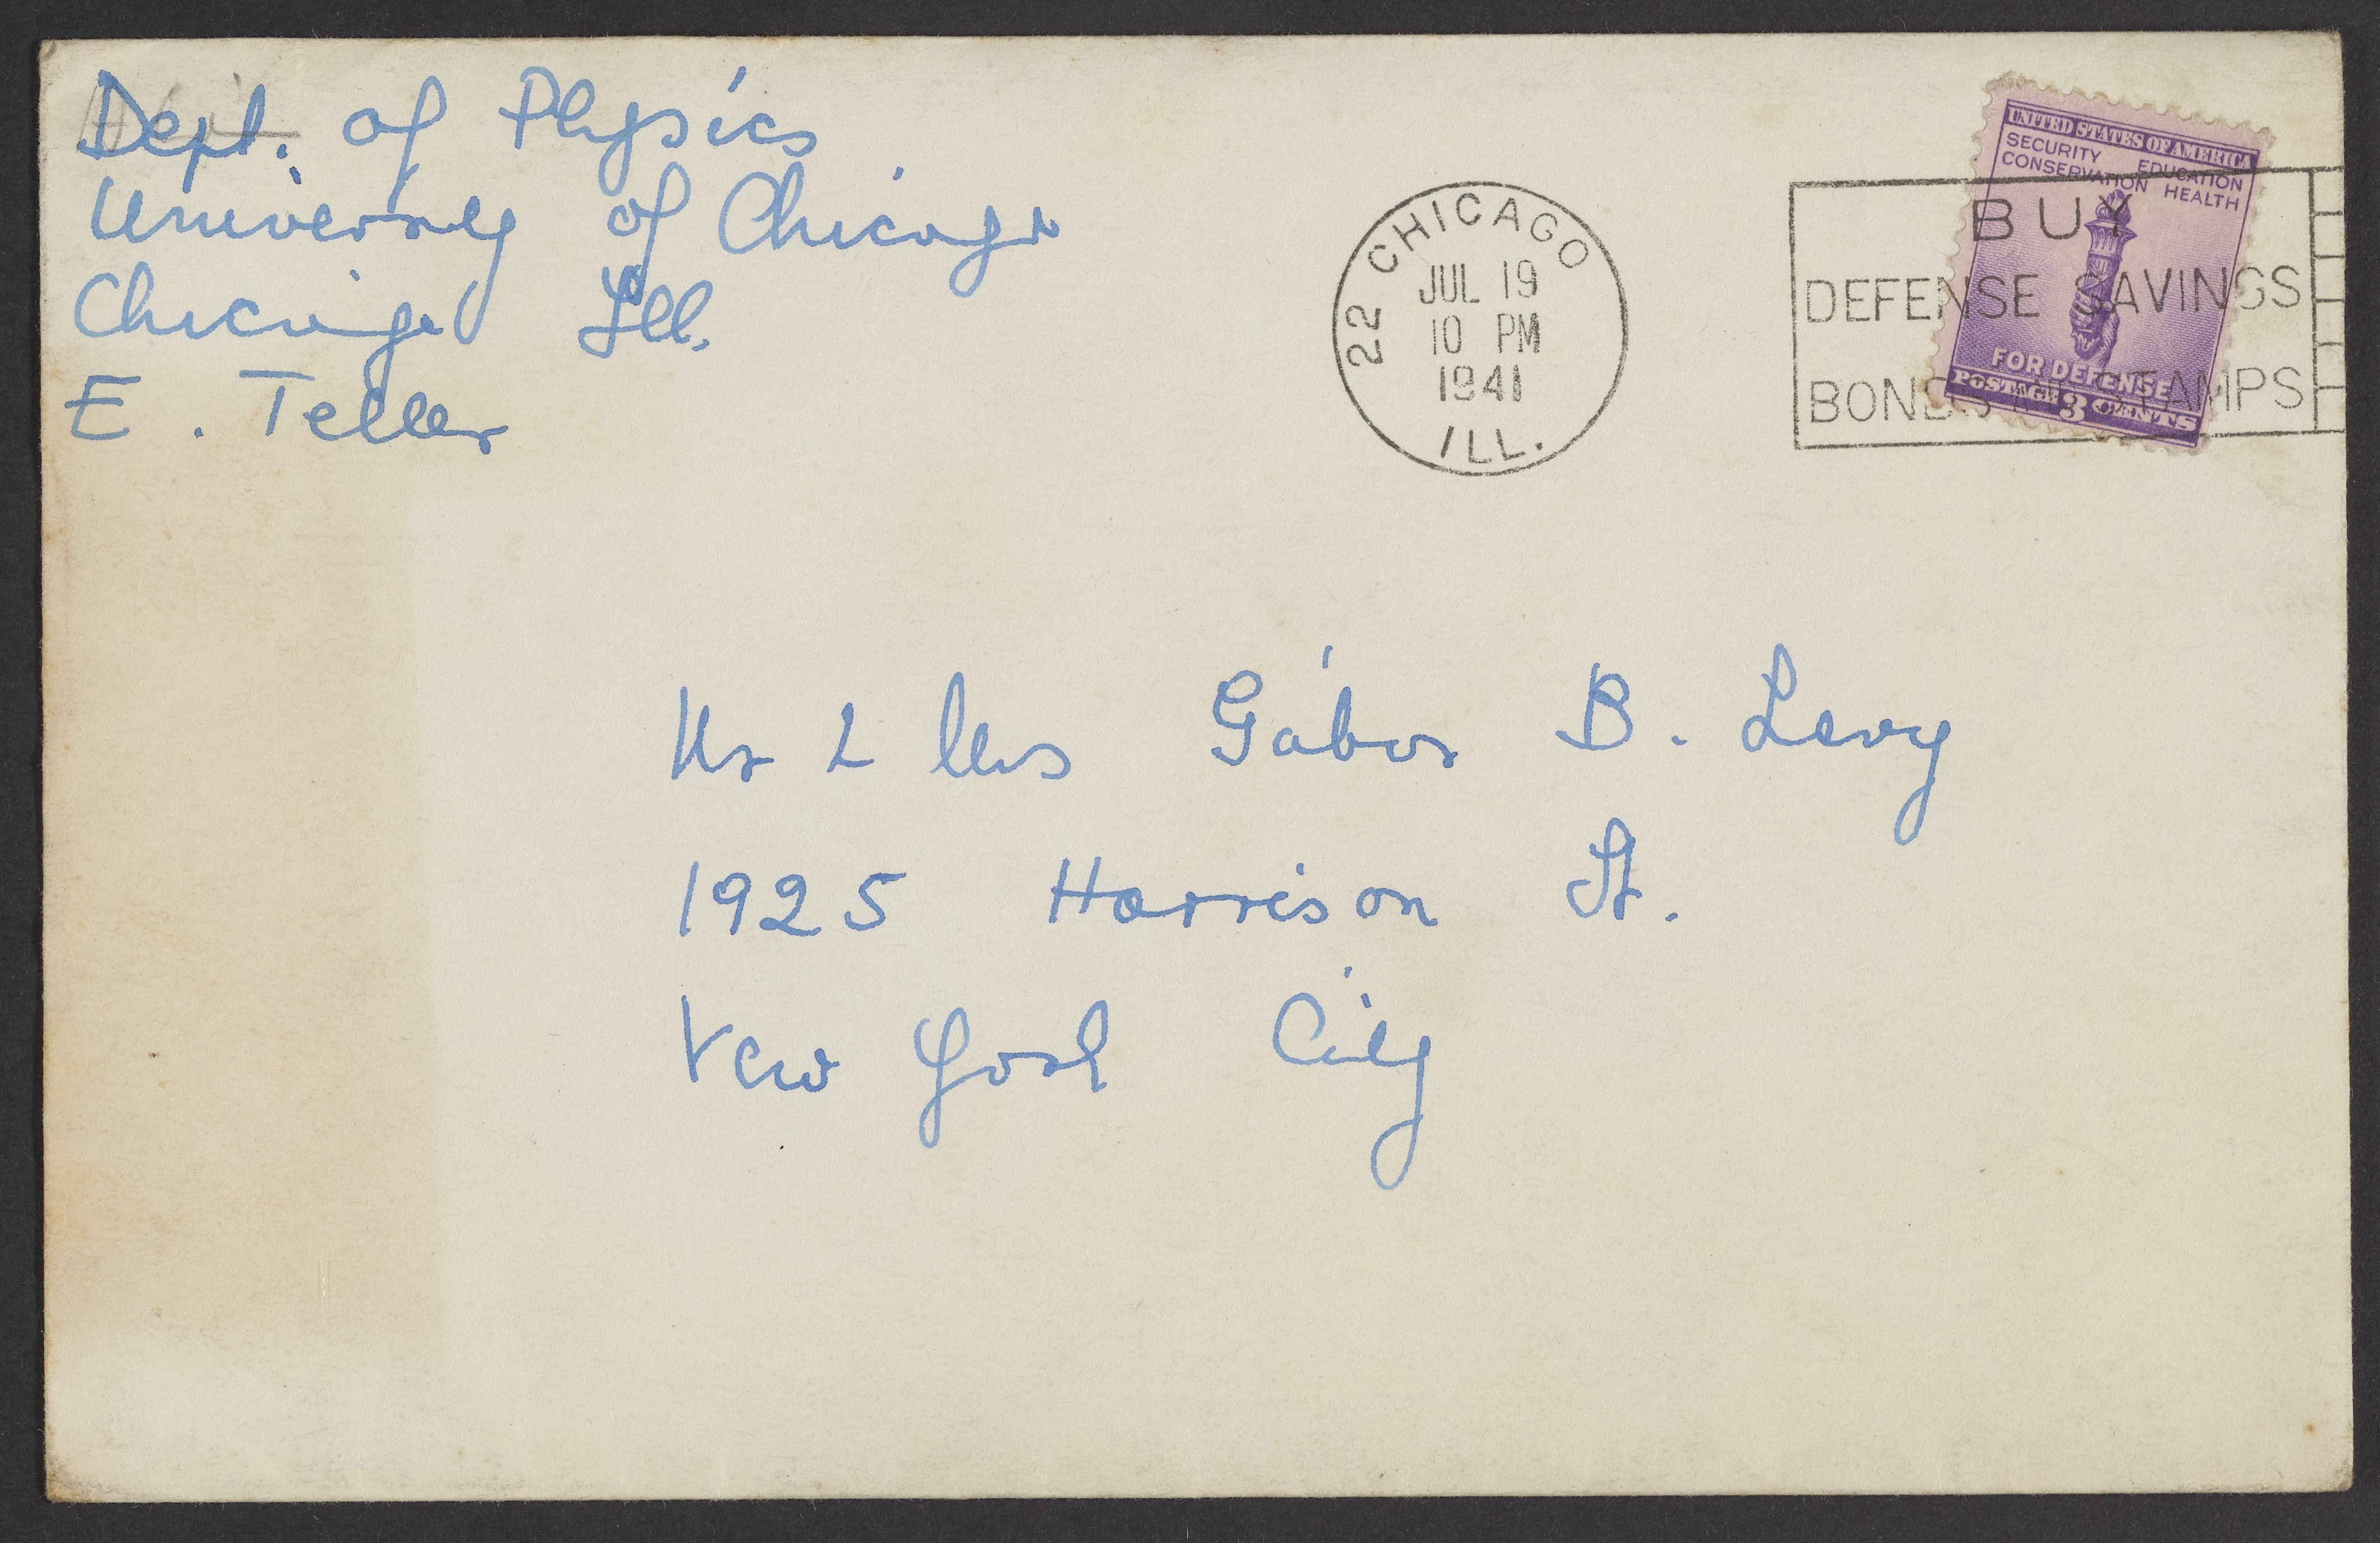 Dept. of Physics
University of Chicago
Chicago Ill.
E. Teller
22 CHICAGO
JUL 19
10 PM
1941
ILL.
BUY
DEFENSE SAVINGS
BONDS AND STAMPS
UNITED STATES OF AMERICA
SECURITY EDUCATION
CONSERVATION HEALTH
FOR DEFENSE
POSTAGE 3 CENTS
Mr & Mrs Gábor B. Levy
1925 Harrison St.
New York City